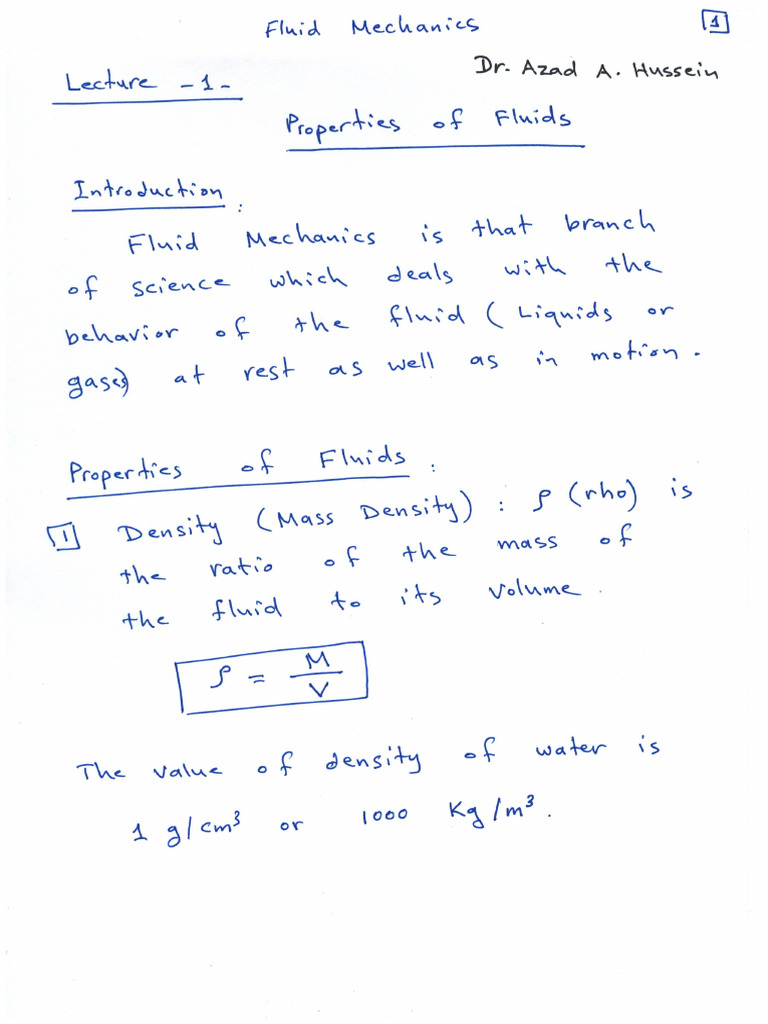 Fluid Mechanics 1
Dr. Azad A. Hussein
Lecture -1-
Properties of Fluids
Introduction :
Fluid Mechanics is that branch
of science which deals with the
behavior of the fluid ( Liquids or
gases) at rest as well as in motion.
Properties of Fluids :
1 Density (Mass Density) : ρ (rho) is
the ratio of the mass of
the fluid to its volume.
ρ = M/V
The value of density of water is
1 g/cm³ or 1000 Kg/m³.